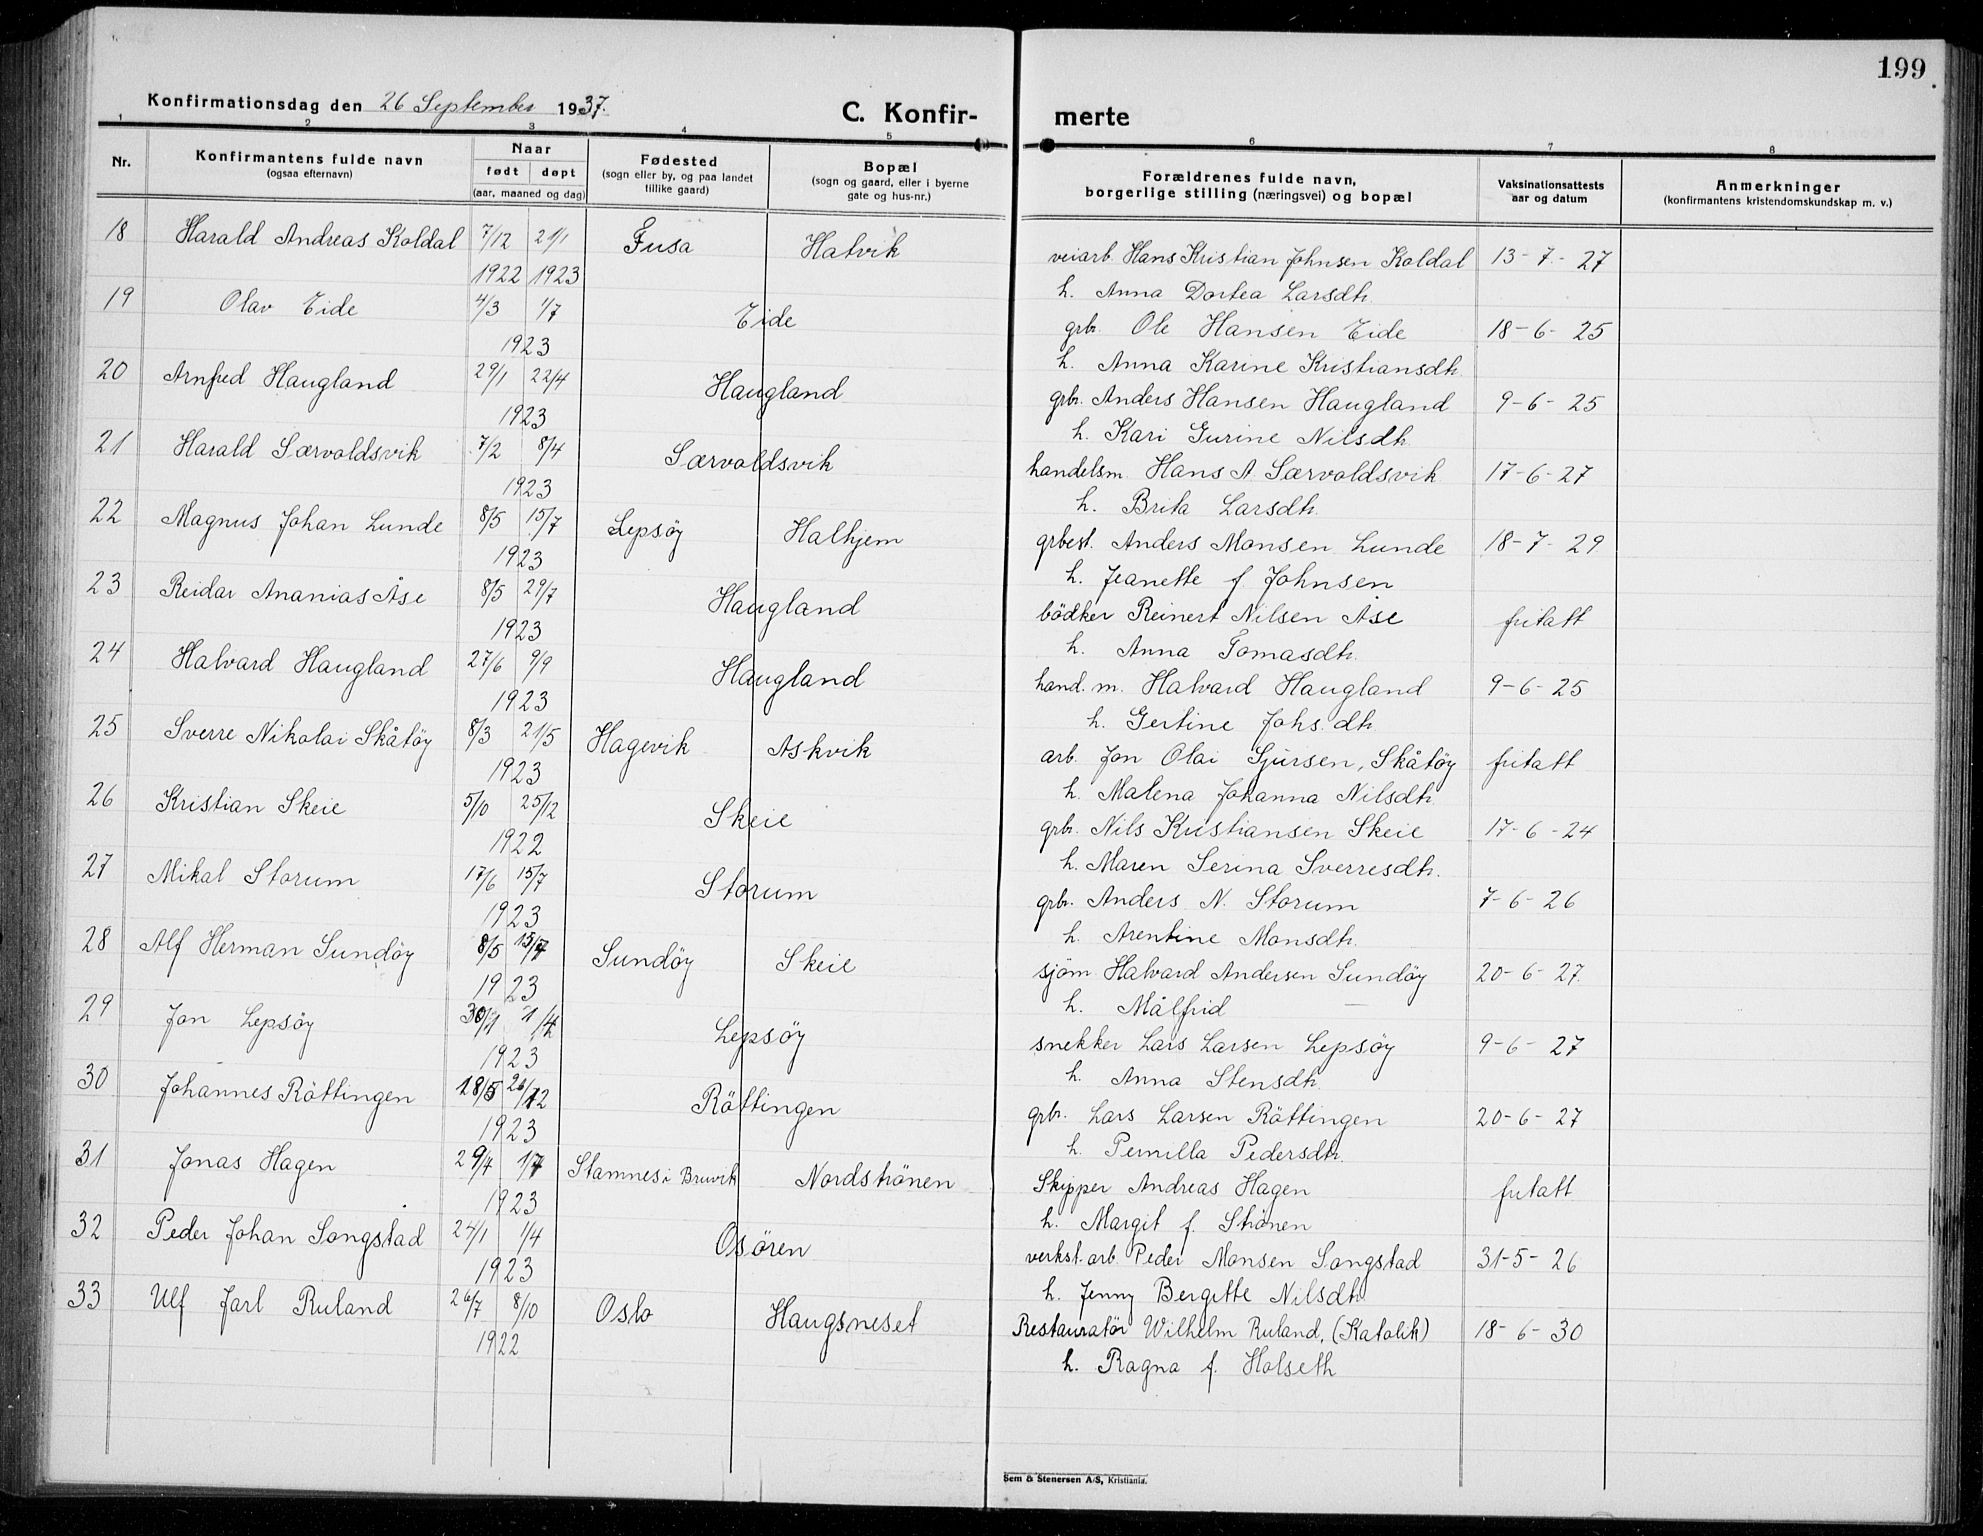 199
Konfirmationsdag den 26 September 1937.
C. Konfir- merte
1 2 3 4 5 6 7 8
Nr.
Konfirmantens fulde navn
(ogsaa efternavn)
Naar
født døpt
(aar, maaned og dag)
Fødested
(sogn eller by, og paa landet
tillike gaard)
Bopæl
(sogn og gaard, eller i byerne
gate og hus-nr.)
Forældrenes fulde navn,
borgerlige stilling (næringsvei) og bopæl
Vaksinationsattests
aar og datum
Anmerkninger
(konfirmantens kristendomskundskap m. v.)
18 Harald Andreas Koldal 7/12 21/1 Fusa Hatvik veiarb. Hans Kristian Johnsen Koldal 13-7-27
1922 1923 h. Anna Dortea Larsdtr.
19 Olav Eide 4/3 1/7 Eide grbr. Ole Hansen Eide 18-6-25
1923 h. Anna Karine Kristiansdtr.
20 Arnfred Haugland 29/1 22/4 Haugland grbr. Anders Hansen Haugland 9-6-25
1923 h. Kari Gurine Nilsdtr.
21 Harald Særvoldsvik 7/2 8/4 Særvoldsvik handelsm. Hans A. Særvoldsvik 17-6-27
1923 h. Brita Larsdtr.
22 Magnus Johan Lunde 8/5 15/7 Lepsøy Halhjem grbest. Anders Monsen Lunde 18-7-29
1923 h. Jeanette f. Johnsen
23 Reidar Ananias Åse 8/5 29/7 Haugland bødker Reinert Nilsen Åse fritatt
1923 h. Anna Tomasdtr.
24 Halvard Haugland 27/6 9/9 Haugland hand.m. Halvard Haugland 9-6-25
1923 h. Gertine Johs.dtr.
25 Sverre Nikolai Skåtøy 8/3 21/5 Hagevik Askvik arb. Jon Olai Sjursen, Skåtøy fritatt
1923 h. Malena Johanna Nilsdtr.
26 Kristian Skeie 5/10 25/12 Skeie grbr. Nils Kristiansen Skeie 17-6-24
1922 h. Maren Serina Sverresdtr.
27 Mikal Storum 17/6 15/7 Storum grbr. Anders N. Storum 7-6-26
1923 h. Arentine Monsdtr.
28 Alf Herman Sundøy 8/5 15/7 Sundøy Skeie sjøm. Halvard Andersen Sundøy 20-6-27.
1923 h. Målfrid —
29 Jon Lepsøy 30/1 1/4 Lepsøy snekker Lars Larsen Lepsøy 9-6-27
1923 h. Anna Stensdtr.
30 Johannes Röttingen 18/5 26/12 Röttingen grbr. Lars Larsen Röttingen 20-6-27
1923 h. Pernilla Pedersdtr.
31 Jonas Hagen 29/4 1/7 Stamnes i Bruvik Nordströnen Skipper Andreas Hagen fritatt
1923 h. Margit f. Strönen
32 Peder Johan Songstad 24/1 1/4 Osören verkst.arb. Peder Monsen Songstad 31-5-26
1923 h. Jenny Bergitte Nilsdtr.
33 Ulf Jarl Ruland 26/7 8/10 Oslo Haugsneset Restauratør Wilhelm Ruland, (Katolik) 18-6-30
1922 h. Ragna f. Holseth
Sem & Stenersen A/S, Kristiania.